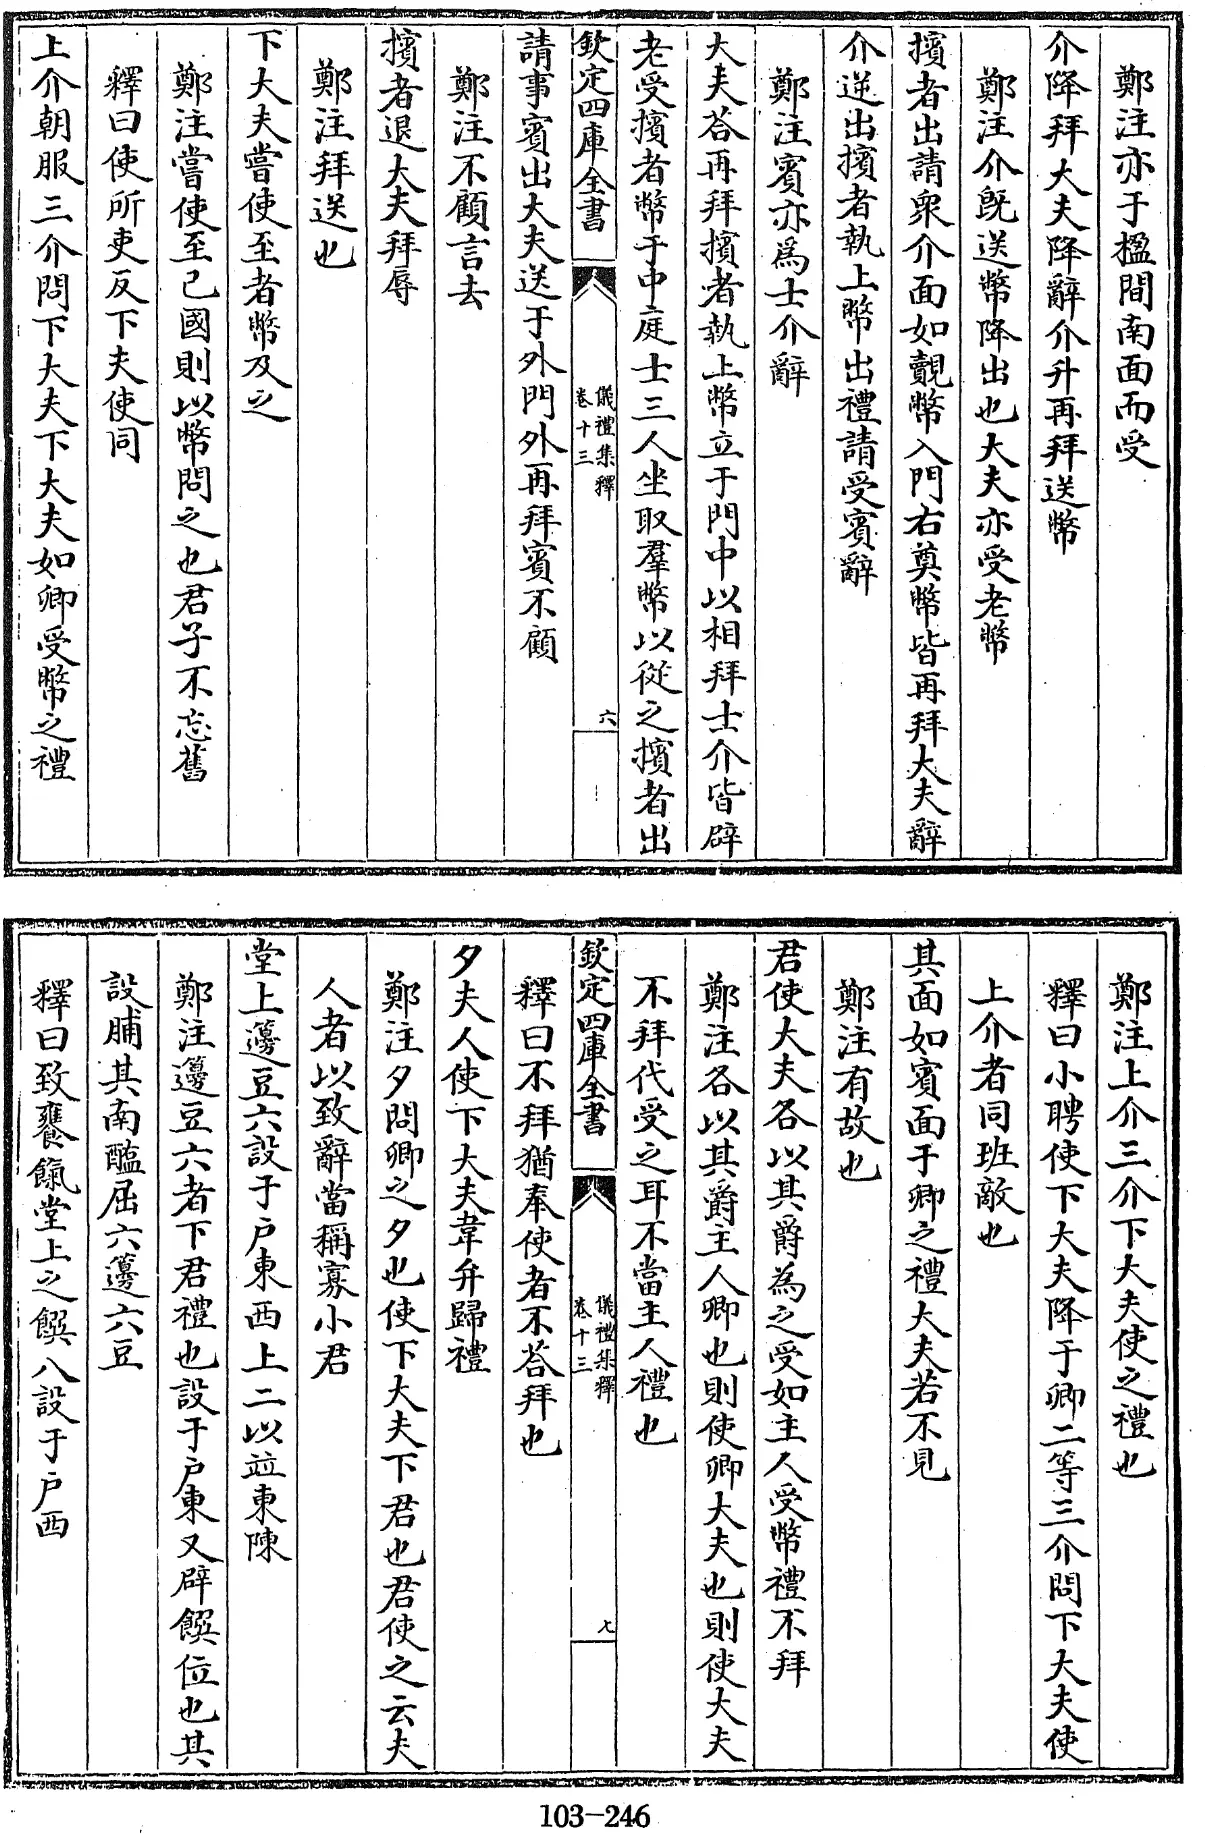 鄭注亦于楹間南面而受
介降拜大夫降辭介升再拜送幣
鄭注介既送幣降出也大夫亦受老幣
擯者出請衆介面如覿幣入門右奠幣皆再拜大夫辭
介逆出擯者執上幣出禮請受賓辭
鄭注賓亦爲士介辭
大夫荅再拜擯者執上幣立于門中以相拜士介皆辟
老受擯者幣于中庭士三人坐取羣幣以從之擯者出
欽定四庫全書
儀禮集釋
卷十三
六
請事賓出大夫送于外門外再拜賓不顧
鄭注不顧言去
擯者退大夫拜辱
鄭注拜送也
下大夫嘗使至者幣及之
鄭注嘗使至己國則以幣問之也君子不忘舊
釋曰使所吏反下夫使同
上介朝服三介問下大夫下大夫如卿受幣之禮
鄭注上介三介下大夫使之禮也
釋曰小聘使下大夫降于卿二等三介問下大夫使
上介者同班敵也
其面如賓面于卿之禮大夫若不見
鄭注有故也
君使大夫各以其爵為之受如主人受幣禮不拜
鄭注各以其爵主人卿也則使卿大夫也則使大夫
不拜代受之耳不當主人禮也
欽定四庫全書
儀禮集釋
卷十三
七
釋曰不拜猶奉使者不荅拜也
夕夫人使下大夫韋弁歸禮
鄭注夕問卿之夕也使下大夫下君也君使之云夫
人者以致辭當稱寡小君
堂上籩豆六設于戶東西上二以竝東陳
鄭注籩豆六者下君禮也設于戶東又辟饌位也其
設脯其南醢屈六籩六豆
釋曰致饔餼堂上之饌八設于戶西
103-246